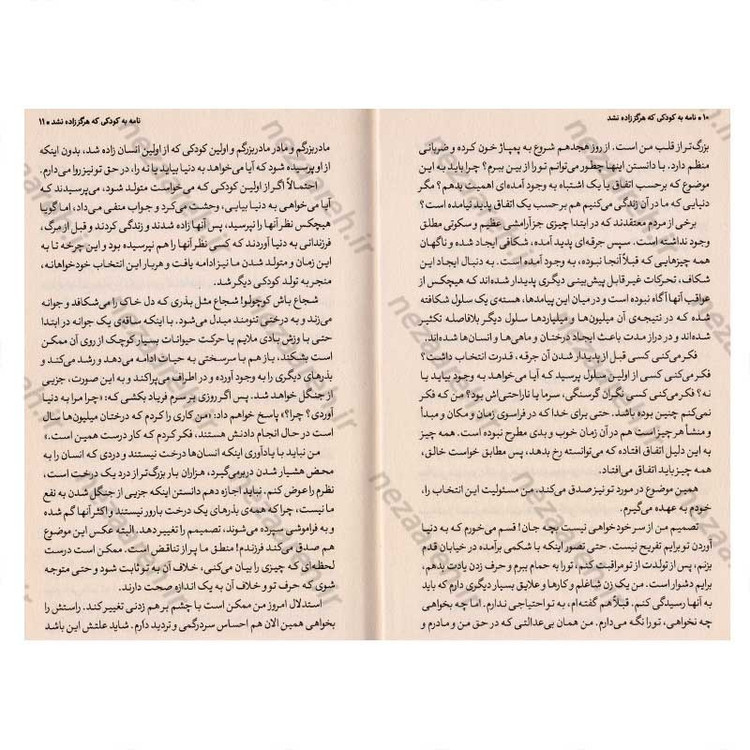 ۱۰ • نامه به کودکی که هرگز زاده نشد
بزرگ‌تر از قلب من است. از روز هجدهم شروع به پمپاژ خون کرده و ضربانی
منظم دارد. با دانستن اینها چطور می‌توانم تو را از بین ببرم؟ چرا باید به این
موضوع که برحسب اتفاق یا یک اشتباه به وجود آمده‌ای اهمیت بدهم؟ مگر
دنیایی که ما در آن زندگی می‌کنیم هم برحسب یک اتفاق پدید نیامده است؟
برخی از مردم معتقدند که در ابتدا چیزی جز آرامشی عظیم و سکوتی مطلق
وجود نداشته است. سپس جرقه‌ای پدید آمده، شکافی ایجاد شده و ناگهان
همه چیزهایی که قبلاً آنجا نبوده، به وجود آمده است. به دنبال ایجاد این
شکاف، تحرکات غیر قابل پیش‌بینی دیگری پدیدار شده‌اند که هیچکس از
عواقب آنها آگاه نبوده است و در میان این پیامدها، هسته‌ی یک سلول شکافته
شده که در نتیجه‌ی آن میلیون‌ها و میلیاردها سلول دیگر بلافاصله تکثیر
شده‌اند و در دراز مدت باعث ایجاد درختان و ماهی‌ها و انسان‌ها شده‌اند.
فکر می‌کنی کسی قبل از پدیدار شدن آن جرقه، قدرت انتخاب داشت؟
فکر می‌کنی کسی از اولین سلول پرسید که آیا می‌خواهد به وجود بیاید یا
نه؟ فکر می‌کنی کسی نگران گرسنگی، سرما یا ناراحتی‌اش بود؟ من که فکر
نمی‌کنم چنین بوده باشد. حتی برای خدا که در فراسوی زمان و مکان و مبدأ
و منشأ هر چیز است هم در آن زمان خوب و بدی مطرح نبوده است. همه چیز
به این دلیل اتفاق افتاده که می‌توانسته رخ بدهد، پس مطابق خواست خالق،
همه چیز باید اتفاق می‌افتاد.
همین موضوع در مورد تو نیز صدق می‌کند. من مسئولیت این انتخاب را،
خودم به عهده می‌گیرم.
تصمیم من از سر خودخواهی نیست بچه جان! قسم می‌خورم که به دنیا
آوردن تو برایم تفریح نیست. حتی تصور اینکه با شکمی برآمده در خیابان قدم
بزنم، پس از تولدت از تو مراقبت کنم، تو را به حمام ببرم و حرف زدن یادت بدهم،
برایم دشوار است. من یک زن شاغلم و کارها و علایق بسیار دیگری دارم که باید
به آنها رسیدگی کنم. قبلاً هم گفته‌ام، به تو احتیاجی ندارم. اما چه بخواهی
چه نخواهی، تو را نگه می‌دارم. من همان بی‌عدالتی که در حق من و مادرم و
نامه به کودکی که هرگز زاده نشد • ۱۱
مادربزرگم و مادر مادربزرگم و اولین کودکی که از اولین انسان زاده شد، بدون اینکه
از او پرسیده شود که آیا می‌خواهد به دنیا بیاید یا نه را، در حق تو نیز روا می‌دارم.
احتمالاً اگر از اولین کودکی که می‌خواست متولد شود، می‌پرسیدند که
آیا می‌خواهی به دنیا بیایی، وحشت می‌کرد و جواب منفی می‌داد، اما گویا
هیچکس نظر آنها را نپرسید، پس آنها زاده شدند و زندگی کردند و قبل از مرگ،
فرزندانی به دنیا آوردند که کسی نظر آنها را هم نپرسیده بود و این چرخه تا به
این زمان و متولد شدن ما نیز ادامه یافت و هر بار این انتخاب خودخواهانه،
منجر به تولد کودکی دیگر شد.
شجاع باش کوچولو! شجاع مثل بذری که دل خاک را می‌شکافد و جوانه
می‌زند و به درختی تنومند مبدل می‌شود. با اینکه ساقه‌ی یک جوانه در ابتدا
حتی با وزش بادی ملایم یا حرکت حیوانات بسیار کوچک از روی آن ممکن
است بشکند، باز هم با سرسختی به حیات ادامه می‌دهد و رشد می‌کند و
بذرهای دیگری را به وجود آورده و در اطراف می‌پراکند و به این صورت، جزیی
از جنگل خواهد شد. پس اگر روزی بر سرم فریاد بکشی که: «چرا مرا به دنیا
آوردی؟ چرا؟» پاسخ خواهم داد: «من کاری را کردم که درختان میلیون‌ها سال
است در حال انجام دادنش هستند، فکر کردم که کار درست همین است.»
من نباید با یادآوری اینکه انسان‌ها درخت نیستند و دردی که انسان را به
محض هشیار شدن دربرمی‌گیرد، هزاران بار بزرگ‌تر از درد یک درخت است،
نظرم را عوض کنم. نباید اجازه دهم دانستن اینکه جزیی از جنگل شدن به نفع
ما نیست، چرا که همه‌ی بذرهای یک درخت بارور نیستند و اکثر آنها گم شده
و به فراموشی سپرده می‌شوند، تصمیمم را تغییر دهد. البته عکس این موضوع
هم صدق می‌کند فرزندم! منطق ما پر از تناقض است. ممکن است درست
لحظه‌ای که چیزی را بیان می‌کنی، خلاف آن به تو ثابت شود و حتی متوجه
شوی که حرف تو و خلاف آن به یک اندازه صحت دارند.
استدلال امروز من ممکن است با چشم بر هم زدنی تغییر کند. راستش را
بخواهی همین الان هم احساس سردرگمی و تردید دارم. شاید علتش این باشد
nezaaheh.ir